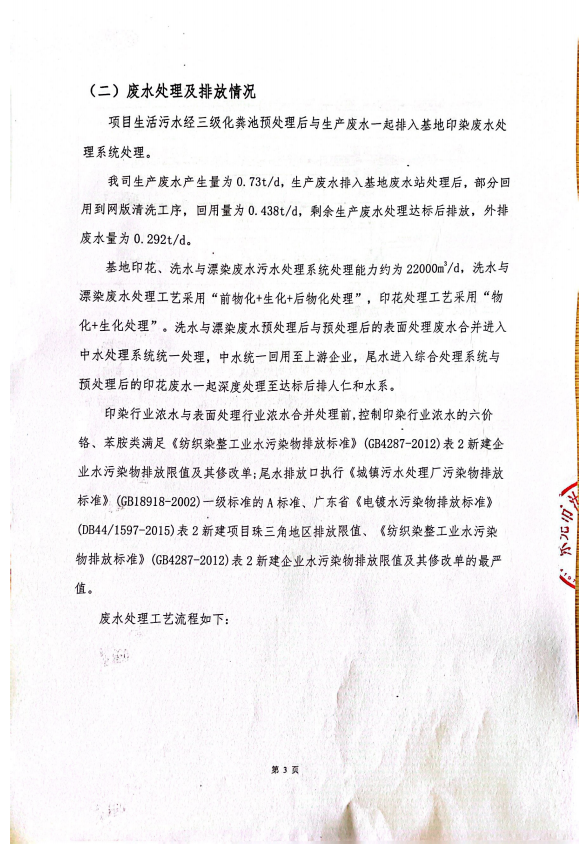 （二）废水处理及排放情况
项目生活污水经三级化粪池预处理后与生产废水一起排入基地印染废水处
理系统处理。
我司生产废水产生量为 0.73t/d，生产废水排入基地废水站处理后，部分回
用到网版清洗工序，回用量为 0.438t/d，剩余生产废水处理达标后排放，外排
废水量为 0.292t/d。
基地印花、洗水与漂染废水污水处理系统处理能力约为 22000m³/d，洗水与
漂染废水处理工艺采用“前物化+生化+后物化处理”，印花处理工艺采用“物
化+生化处理”。洗水与漂染废水预处理后与预处理后的表面处理废水合并进入
中水处理系统统一处理，中水统一回用至上游企业，尾水进入综合处理系统与
预处理后的印花废水一起深度处理至达标后排人仁和水系。
印染行业浓水与表面处理行业浓水合并处理前,控制印染行业浓水的六价
铬、苯胺类满足《纺织染整工业水污染物排放标准》(GB4287-2012)表 2 新建企
业水污染物排放限值及其修改单;尾水排放口执行《城镇污水处理厂污染物排放
标准》(GB18918-2002)一级标准的 A 标准、广东省《电镀水污染物排放标准》
(DB44/1597-2015)表 2 新建项目珠三角地区排放限值、《纺织染整工业水污染
物排放标准》(GB4287-2012)表 2 新建企业水污染物排放限值及其修改单的最严
值。
废水处理工艺流程如下:
第 3 页